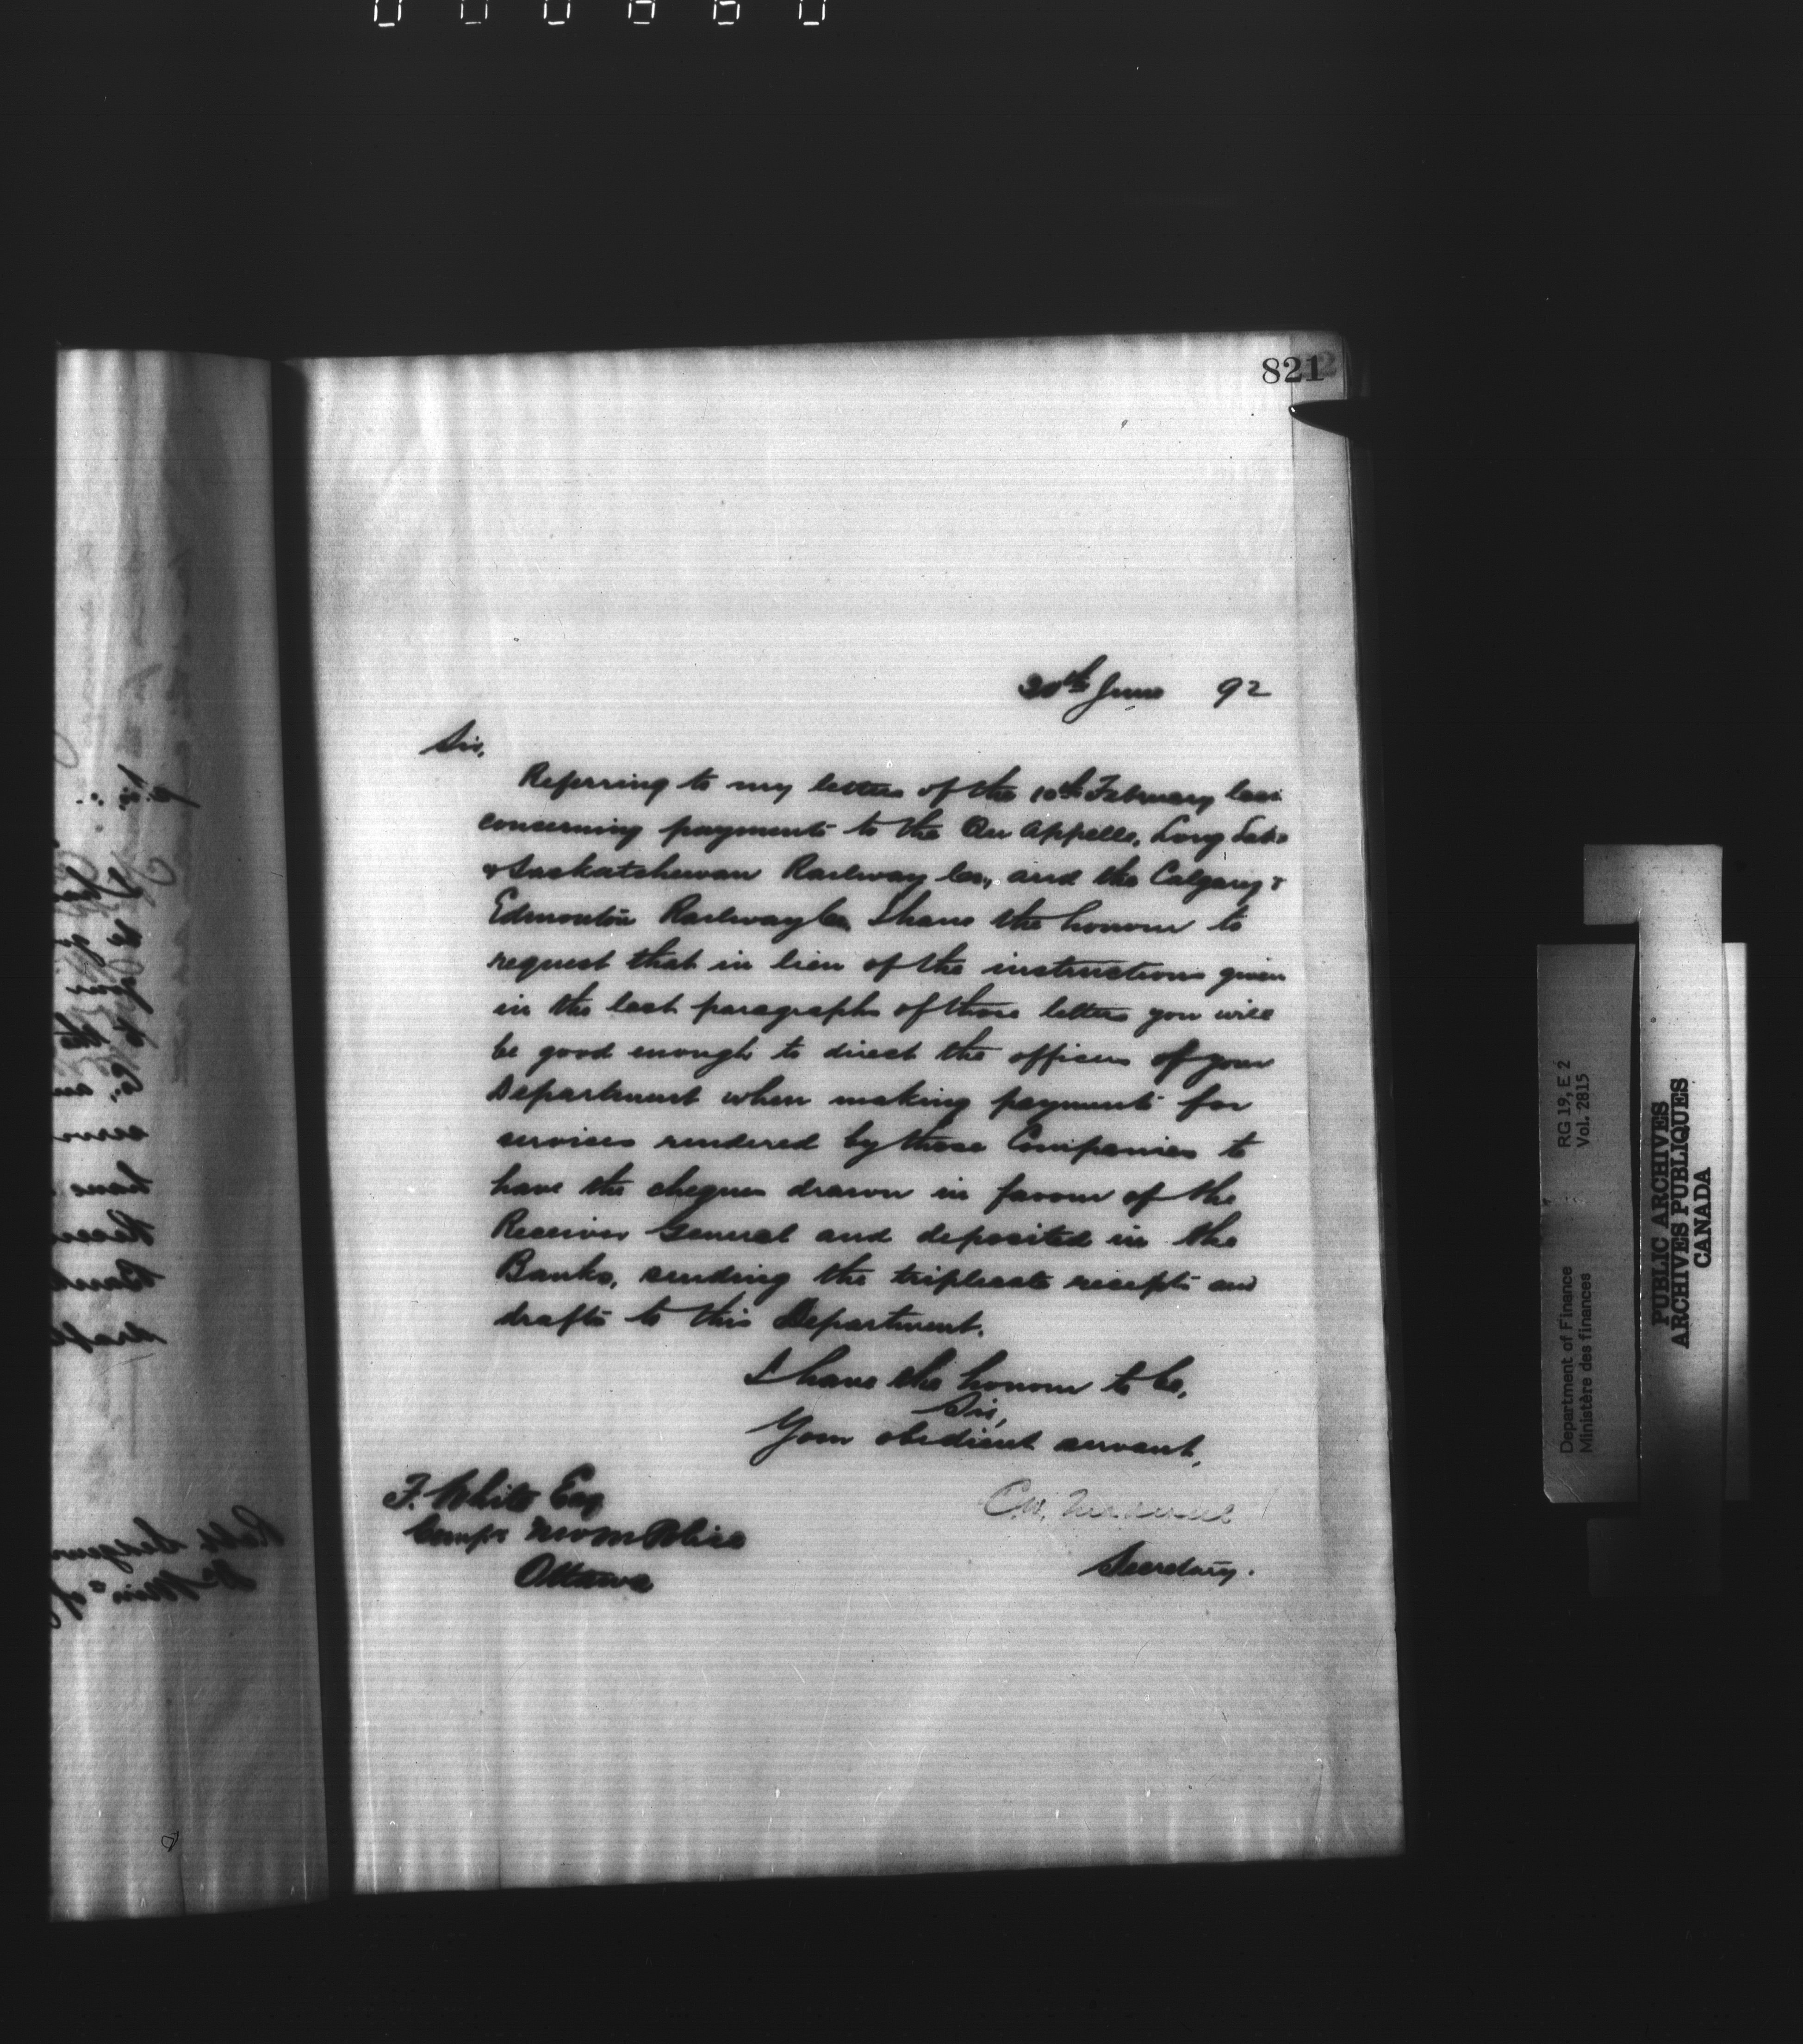 821
30th June 92
Sir,
Referring to my letters of the 10th February last
concerning payments to the Qu Appelle, Long Lake
& Saskatchewan Railway Co., and the Calgary &
Edmonton Railway Co. I have the honour to
request that in lieu of the instructions given
in the last paragraph of those letters you will
be good enough to direct the officers of your
Department when making payments for
services rendered by those Companies to
have the cheques drawn in favour of the
Receiver General and deposited in the
Banks, sending the triplicate receipts and
drafts to this Department.
I have the honour to be,
Sir,
Your obedient servant,
F. White Esq
Compr N W M Police
Ottawa
Secretary.
RG 19, E 2
Vol. 2815
Department of Finance
Ministère des finances
PUBLIC ARCHIVES
ARCHIVES PUBLIQUES
CANADA